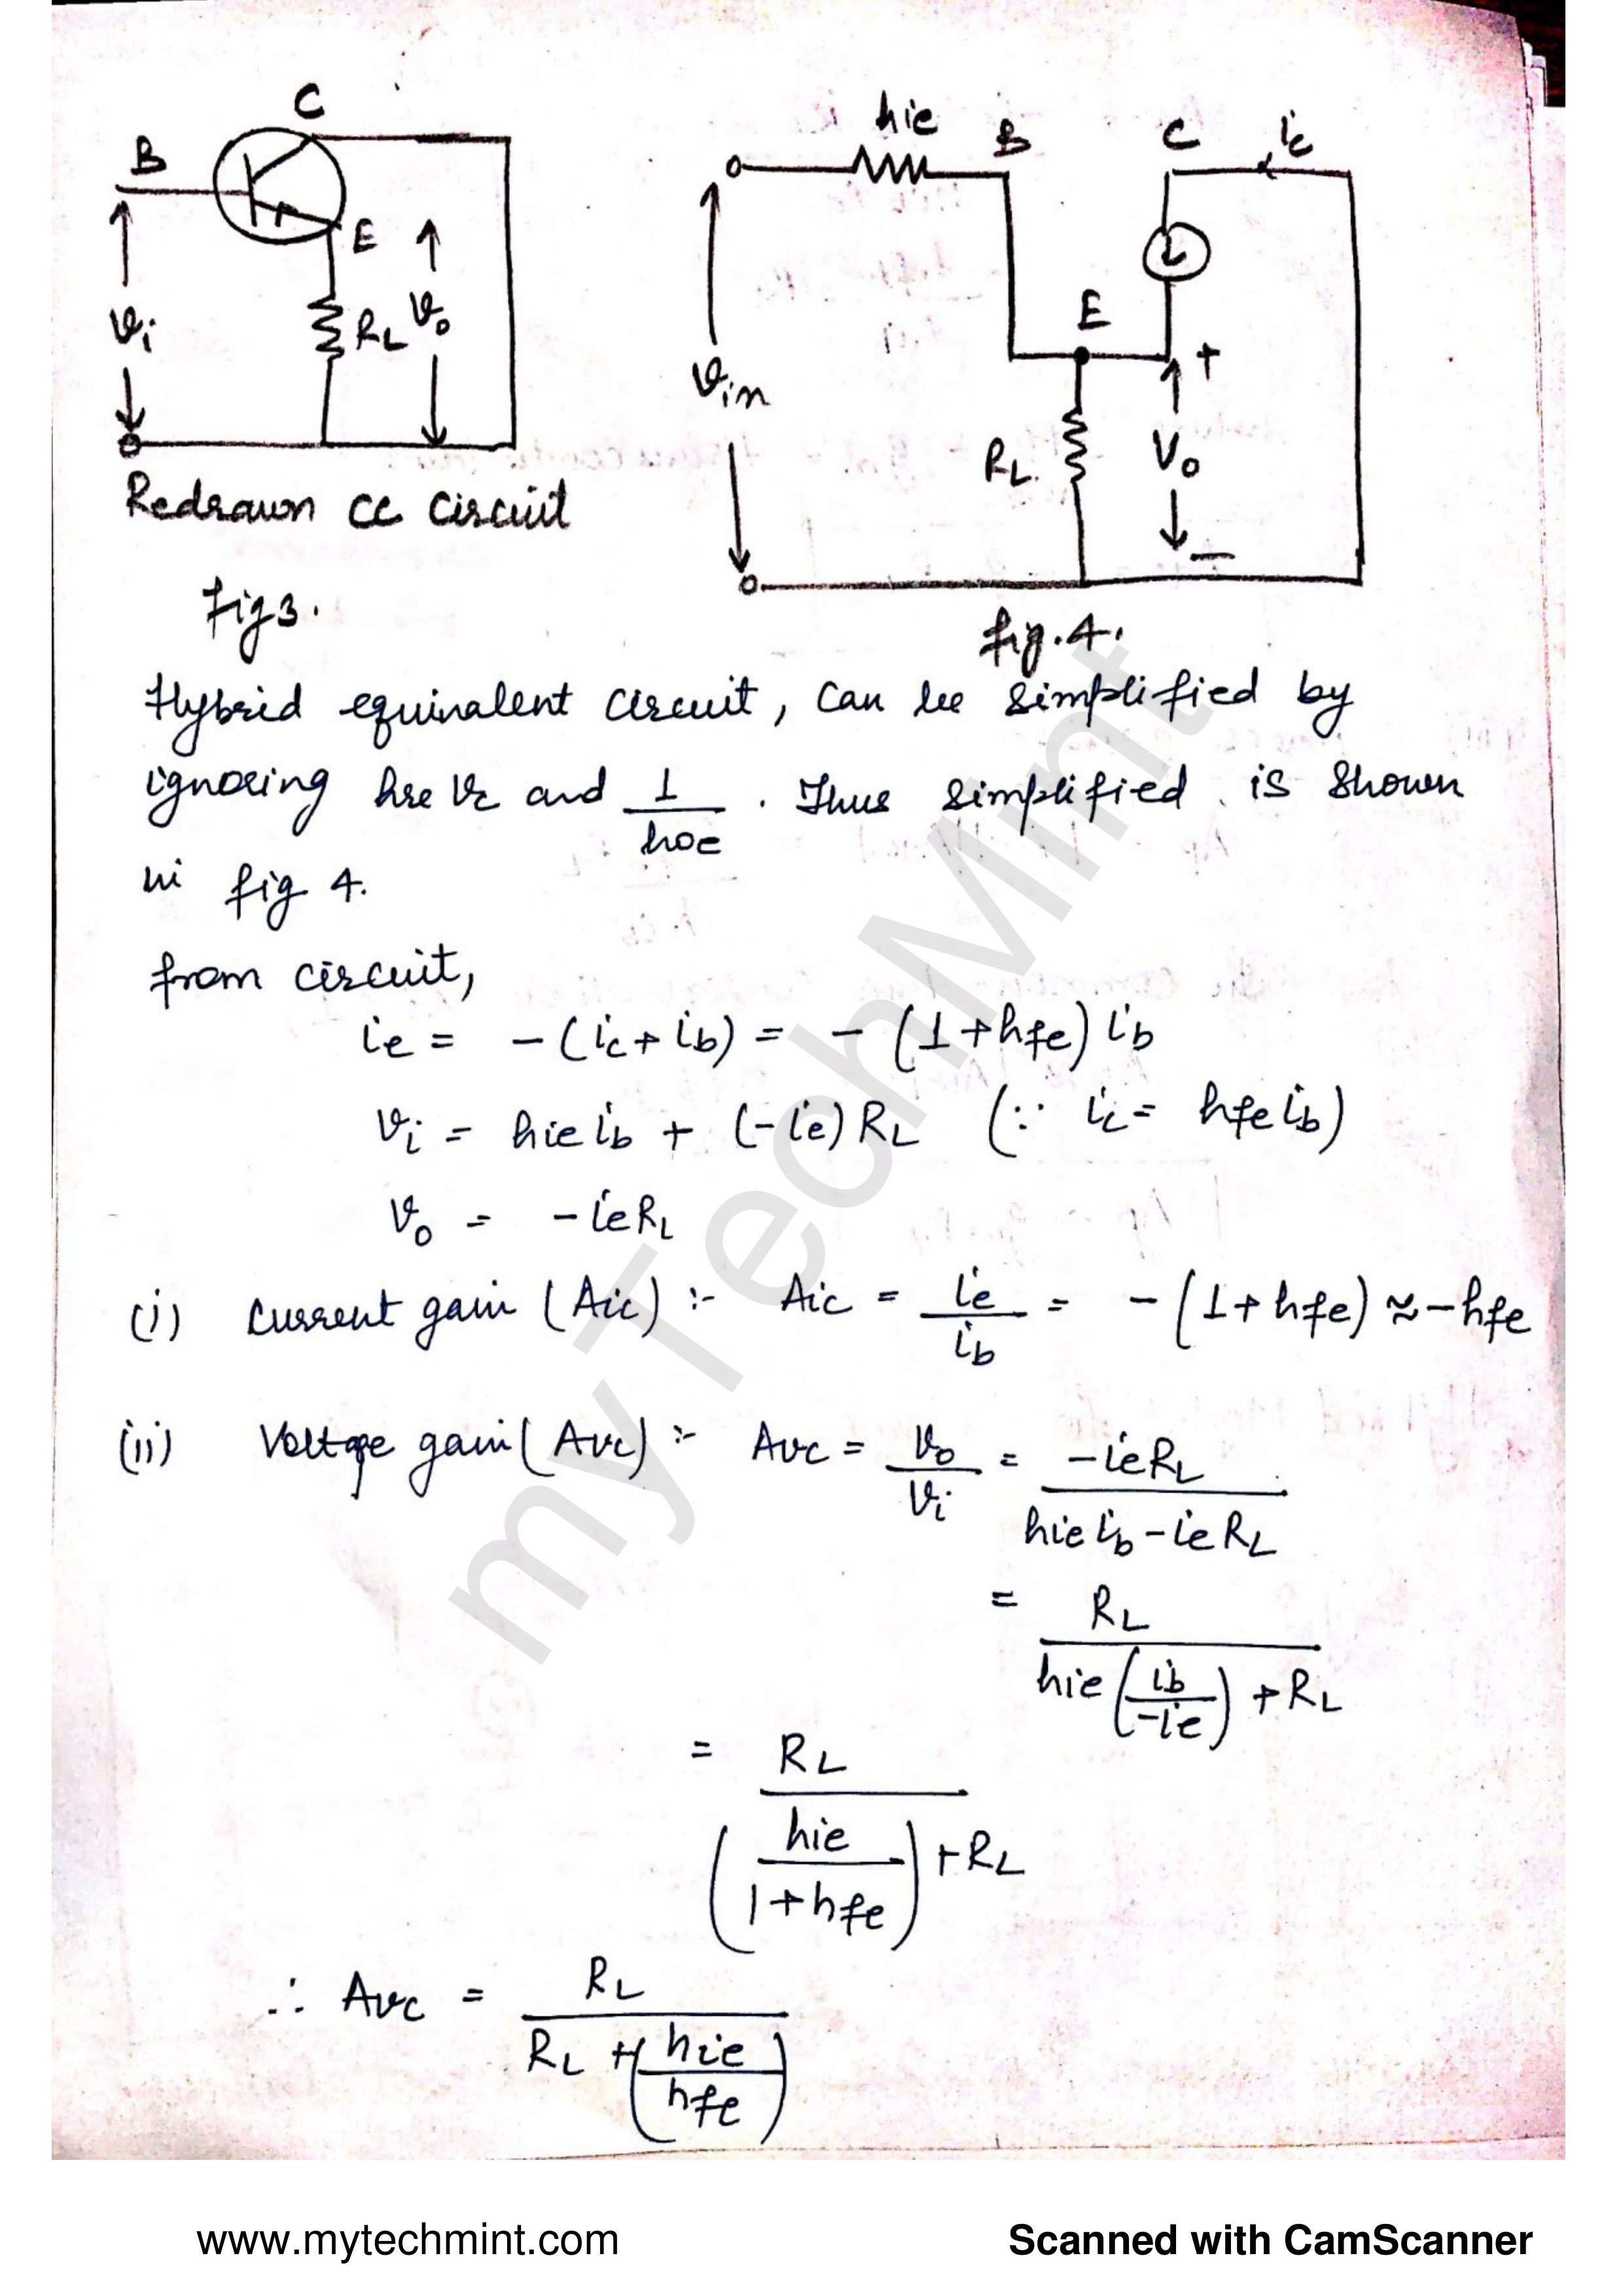 C
B
E
vi
RL
vo
Redrawn CC Circuit
fig 3.
hie
B
C
ic
E
+
vin
RL.
Vo
−
fig. 4.
Hybrid equivalent circuit, can be simplified by
ignoring hre vc and 1/hoe . Thus simplified is shown
in fig 4.
from circuit,
ie = - (ic + ib) = - (1 + hfe) ib
vi = hie ib + (-ie) RL (∵ ic = hfe ib)
vo = - ie RL
(i) Current gain (Aic) :- Aic = ie/ib = - (1 + hfe) ≈ - hfe
(ii) Voltage gain (Avc) :- Avc = vo/vi = -ie RL / hie ib - ie RL
= RL / hie (ib/-ie) + RL
= RL / (hie/1+hfe) + RL
∴ Avc = RL / RL + (hie/hfe)
myTechMint
www.mytechmint.com
Scanned with CamScanner